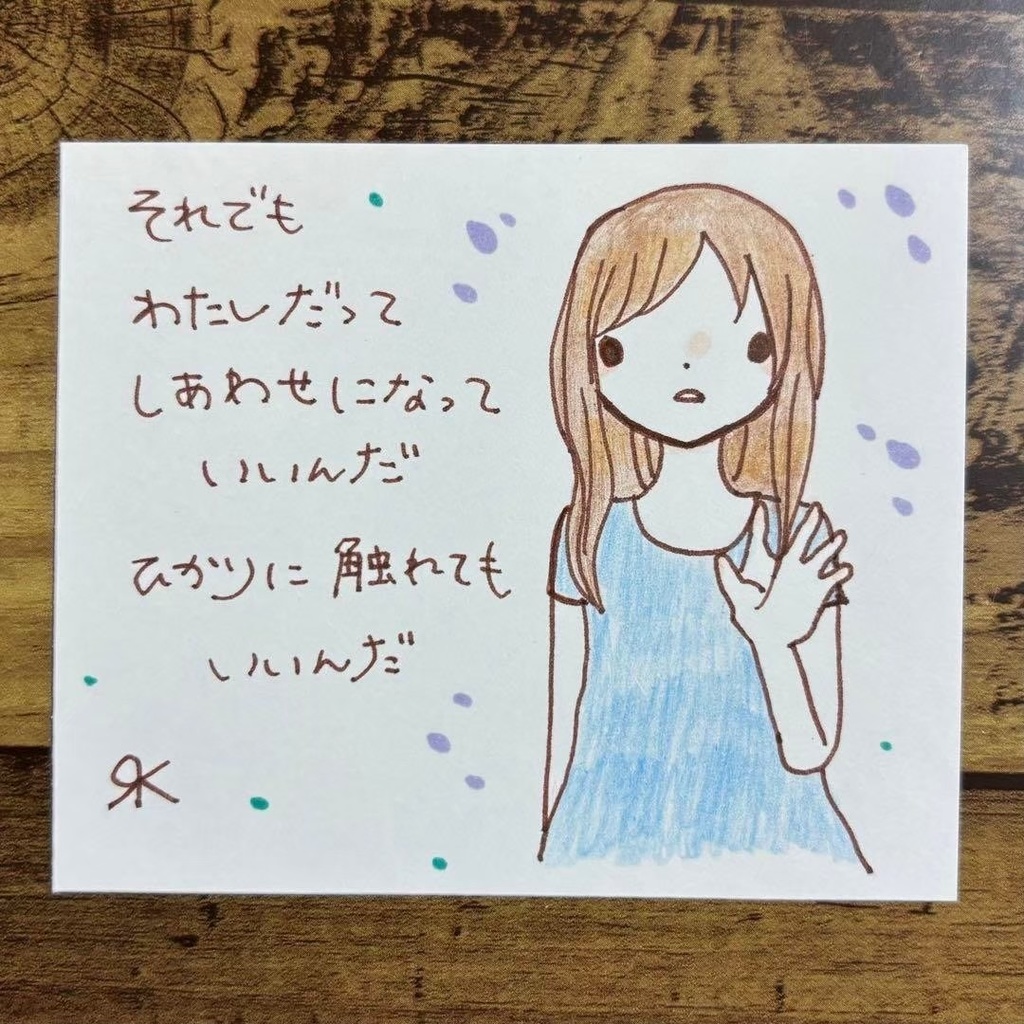 それでも
わたしだって
しあわせになって
いいんだ
ひかりに触れても
いいんだ